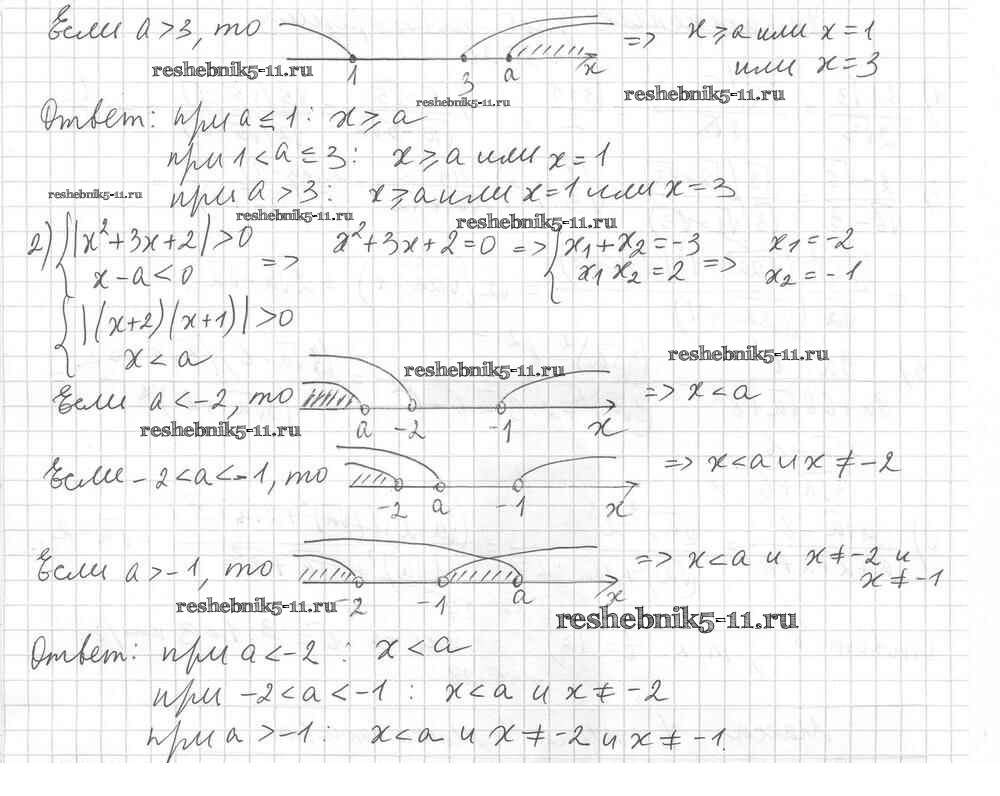 Если a > 3, то
1 3 a x
=> x ⩾ a или x = 1
или x = 3
reshebnik5-11.ru
reshebnik5-11.ru
reshebnik5-11.ru
Ответ: при a ≤ 1 : x ⩾ a
при 1 < a ≤ 3 : x ⩾ a или x = 1
при a > 3 : x ⩾ a или x = 1 или x = 3
reshebnik5-11.ru
reshebnik5-11.ru
reshebnik5-11.ru
2) { |x² + 3x + 2| > 0
x - a < 0
=> x² + 3x + 2 = 0 => { x₁ + x₂ = -3
x₁ x₂ = 2
=> x₁ = -2
x₂ = -1
{ |(x+2)(x+1)| > 0
x < a
reshebnik5-11.ru
reshebnik5-11.ru
Если a < -2, то
a -2 -1 x
=> x < a
reshebnik5-11.ru
Если -2 < a < -1, то
-2 a -1 x
=> x < a и x ≠ -2
Если a > -1, то
-2 -1 a x
=> x < a и x ≠ -2 и
x ≠ -1
reshebnik5-11.ru
reshebnik5-11.ru
Ответ: при a < -2 : x < a
при -2 < a < -1 : x < a и x ≠ -2
при a > -1 : x < a и x ≠ -2 и x ≠ -1.